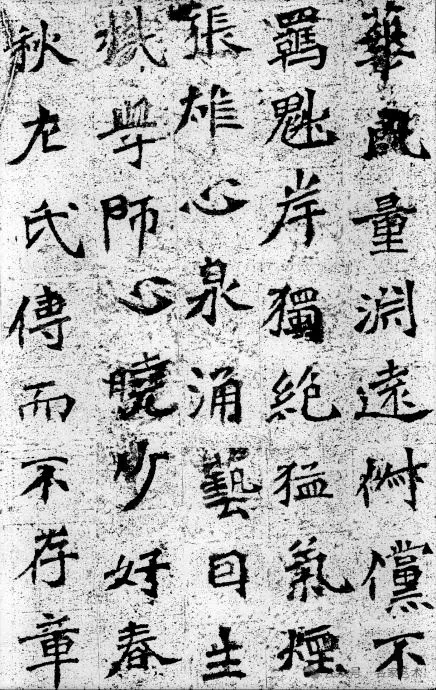 華風量淵遠俶儻不
羈魁岸獨絕猛氣煙
張雄心泉涌藝因生
機學師心曉少好春
秋左氏傳而不存章